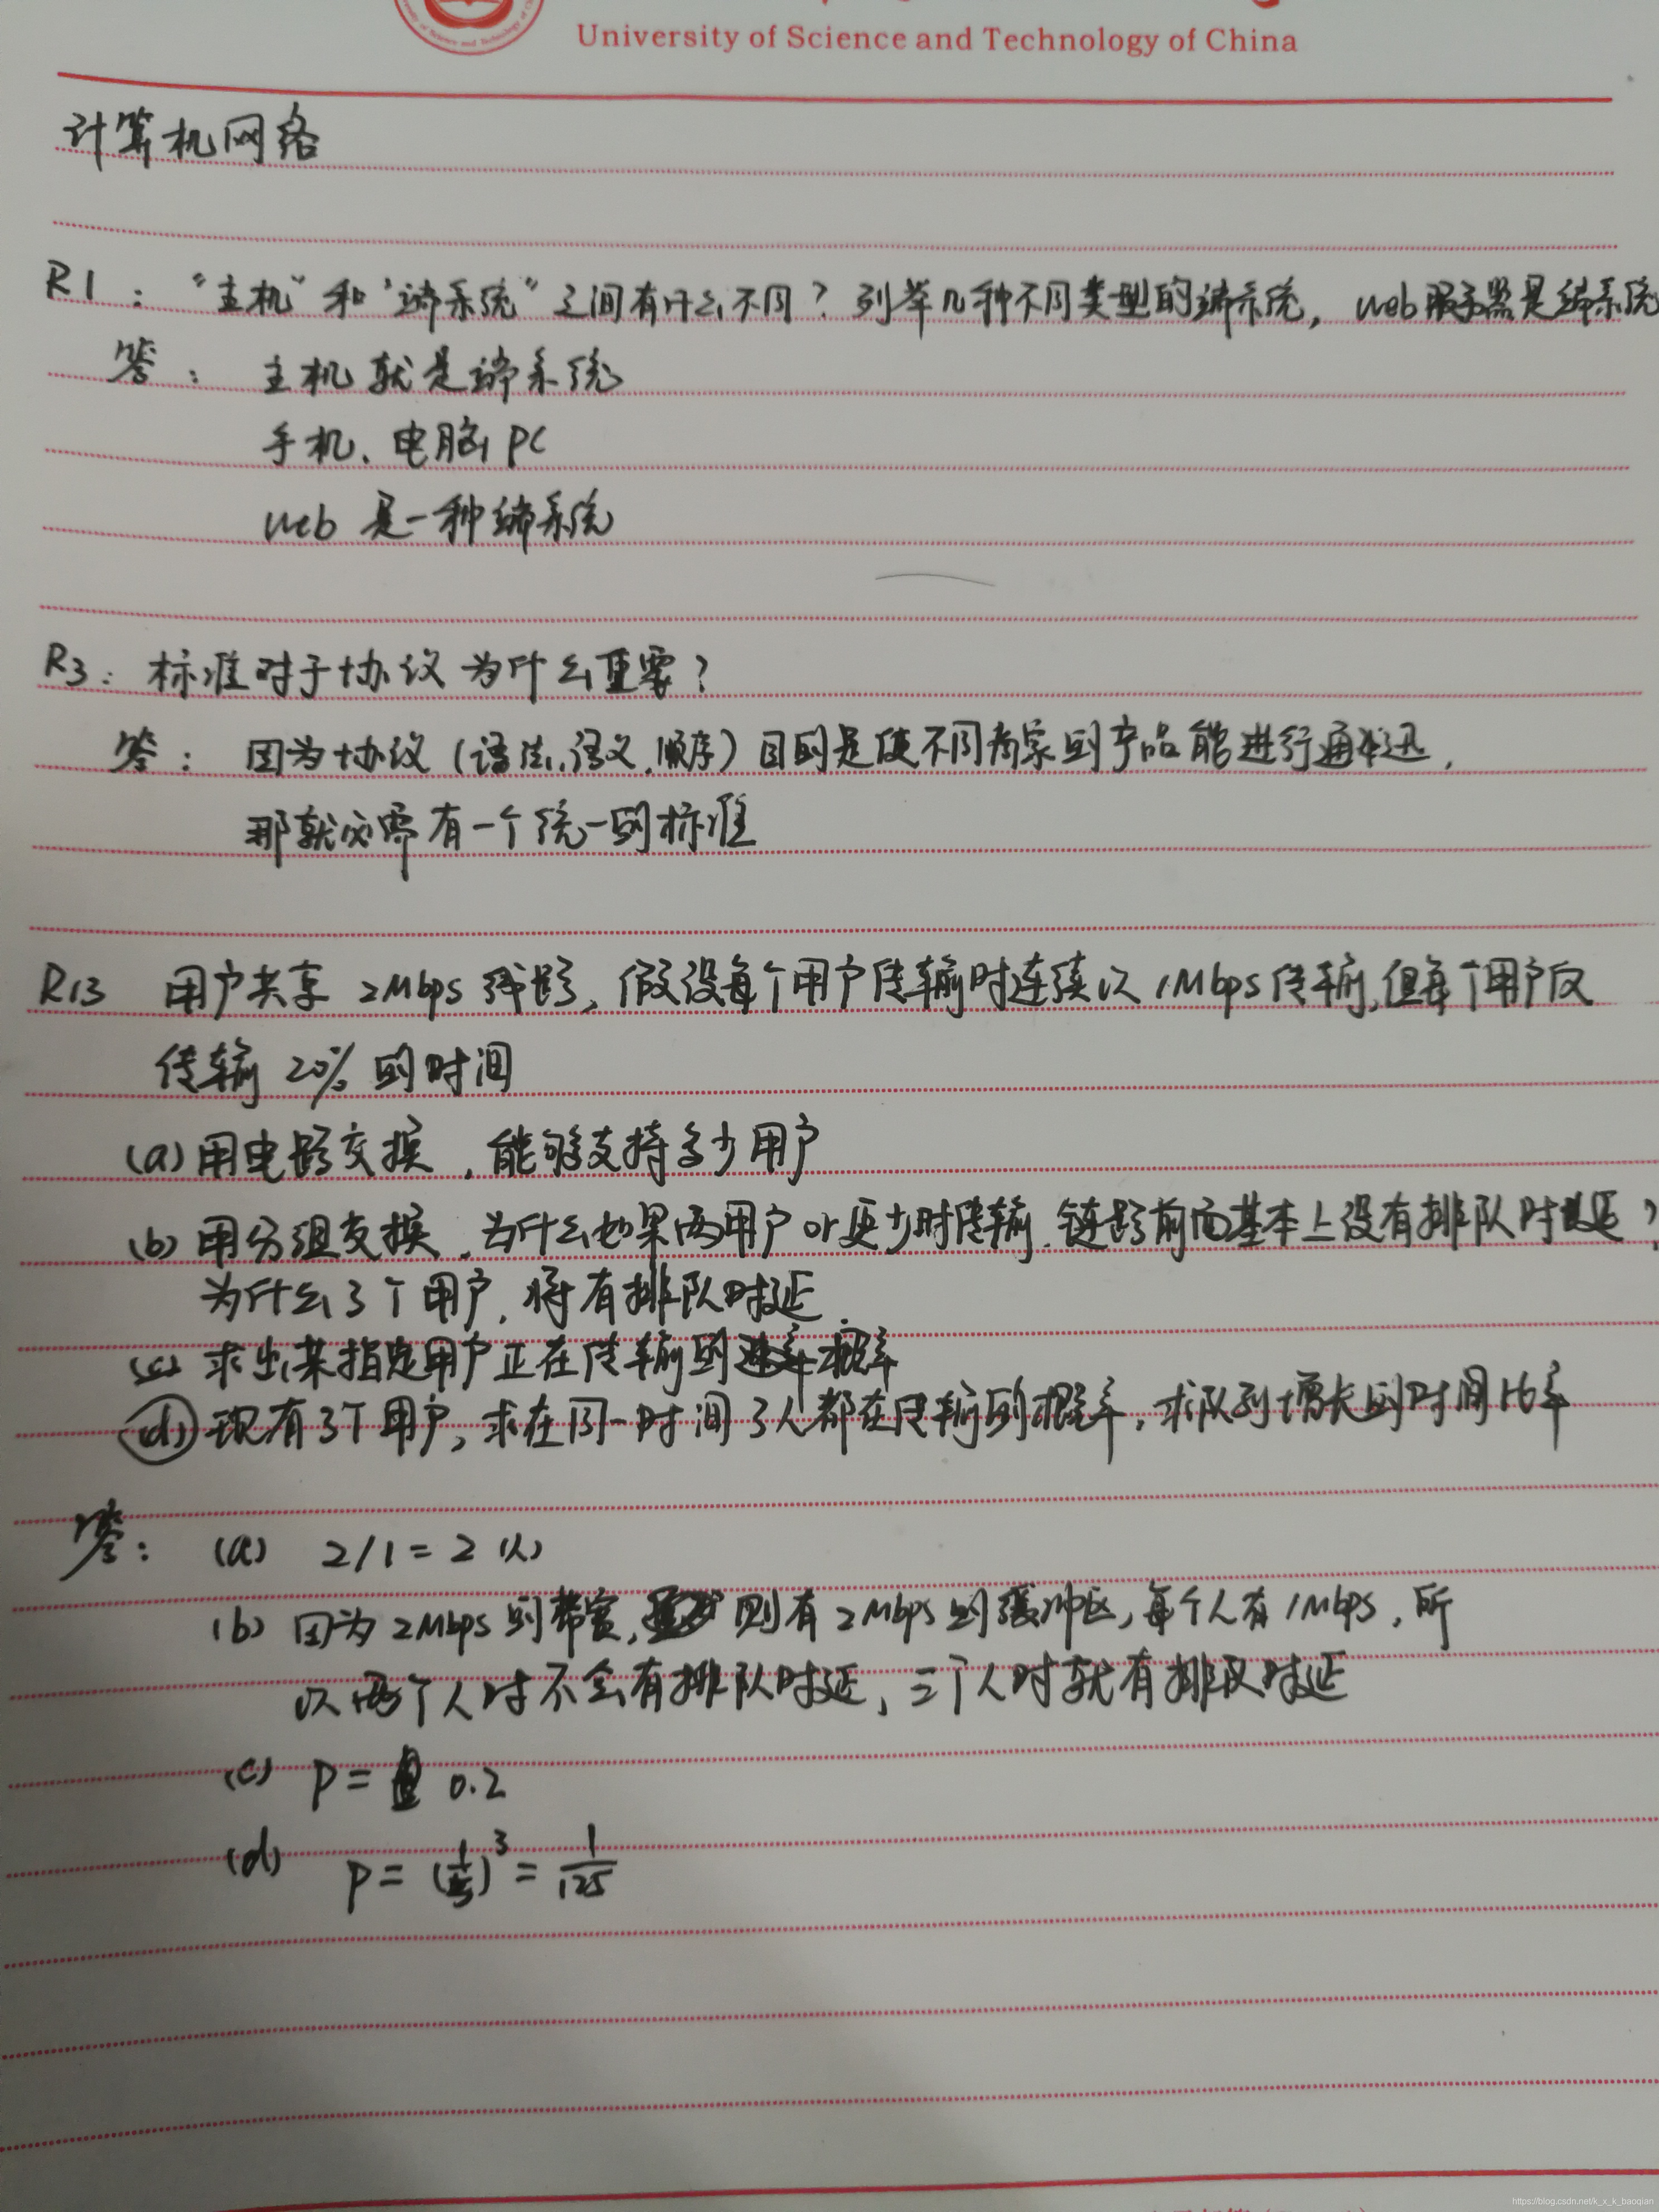 University of Science and Technology of China
计算机网络
R1: “主机”和“端系统”之间有什么不同?列举几种不同类型的端系统, web服务器是端系统
答: 主机就是端系统
手机、电脑PC
web 是一种端系统
R3: 标准对于协议为什么重要?
答: 因为协议(语法,语义,顺序)目的是使不同商家的产品能进行通讯,
那就必需有一个统一的标准
R13 用户共享 2Mbps 链路, 假设每个用户传输时连续以1Mbps传输,但每个用户仅
传输 20% 的时间
(a) 用电路交换, 能够支持多少用户
(b) 用分组交换, 为什么如果两用户 or 更少时传输, 链路前面基本上没有排队时延?
为什么3个用户, 将有排队时延.
(c) 求出某指定用户正在传输的概率
(d) 现有3个用户, 求在同一时间3人都在传输的概率, 求队列增长的时间比率
答: (a) 2/1=2 (人)
(b) 因为2Mbps的带宽, 则有2Mbps的缓冲区, 每个人有1Mbps, 所
以两个人时不会有排队时延, 三个人时就有排队时延
(c) P= 0.2
(d) P=(1/5)³=1/125
https://blog.csdn.net/k_x_k_baoqian